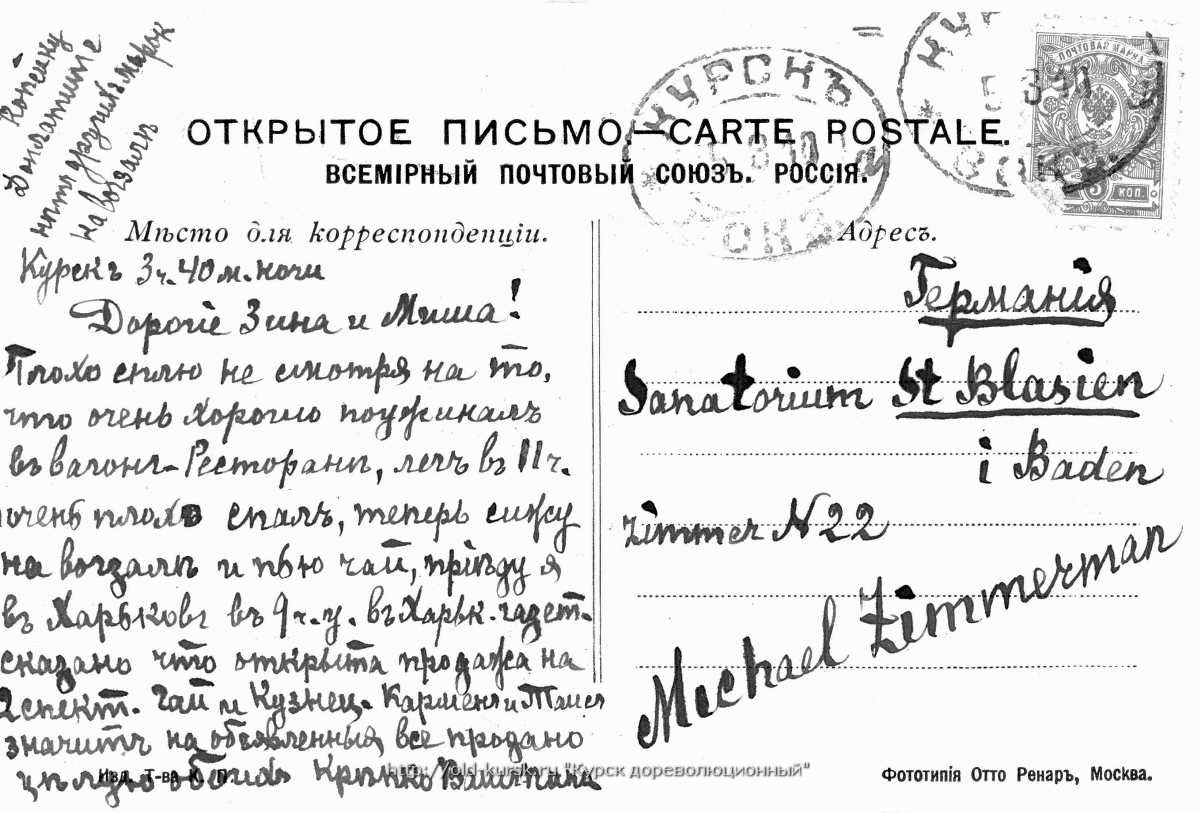 Копейку
доплатите
нѣтъ другихъ марок
на вокзалѣ
КУРСКЪ
ВОКЗ
КУРСКЪ
ВОКЗ
ПОЧТОВАЯ МАРКА
3 КОП.
ОТКРЫТОЕ ПИСЬМО—CARTE POSTALE.
ВСЕМІРНЫЙ ПОЧТОВЫЙ СОЮЗЪ. РОССІЯ.
Мѣсто для корреспонденціи.
Адресъ.
Курскъ 3ч. 40м. ночи
Дорогіе Зина и Миша!
Плохо сплю не смотря на то,
что очень хорошо поужиналъ
въ вагонѣ-Ресторанѣ, легъ въ 11ч.
очень плохо спалъ, теперь сижу
на вокзалѣ и пью чай, пріѣду я
въ Харьковъ въ 9ч. у. въ Харьк. газет.
сказано что открыта продажа на
2 спект. Гай и Кузнец. Карменъ и Таисъ
значитъ на объявленныя все продано
цѣлую обоихъ Крѣпко Вашъ
Германія
Sanatorium St Blasien
i Baden
Zimmer N 22
Michael Zimmerman
Изд. Т-ва К. П.
http://old-kursk.ru "Курск дореволюционный"
Фототипія Отто Ренаръ, Москва.